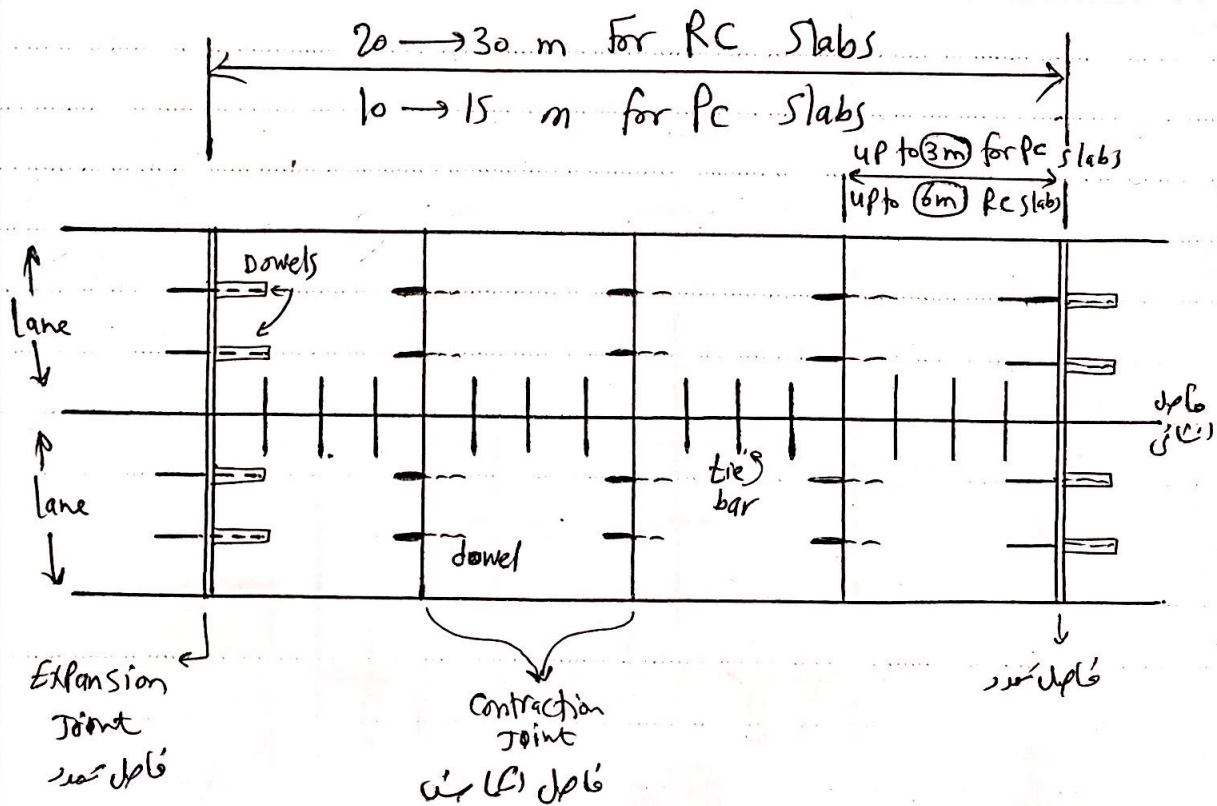 20 → 30 m for RC Slabs
10 → 15 m for PC Slabs
up to 3m for PC slabs
up to 6m RC slabs
Lane
Dowels
فاصل
انشائي
Lane
tie
bar
dowel
Expansion
Joint
فاصل تمدد
Contraction
Joint
فاصل انكماش
فاصل تمدد